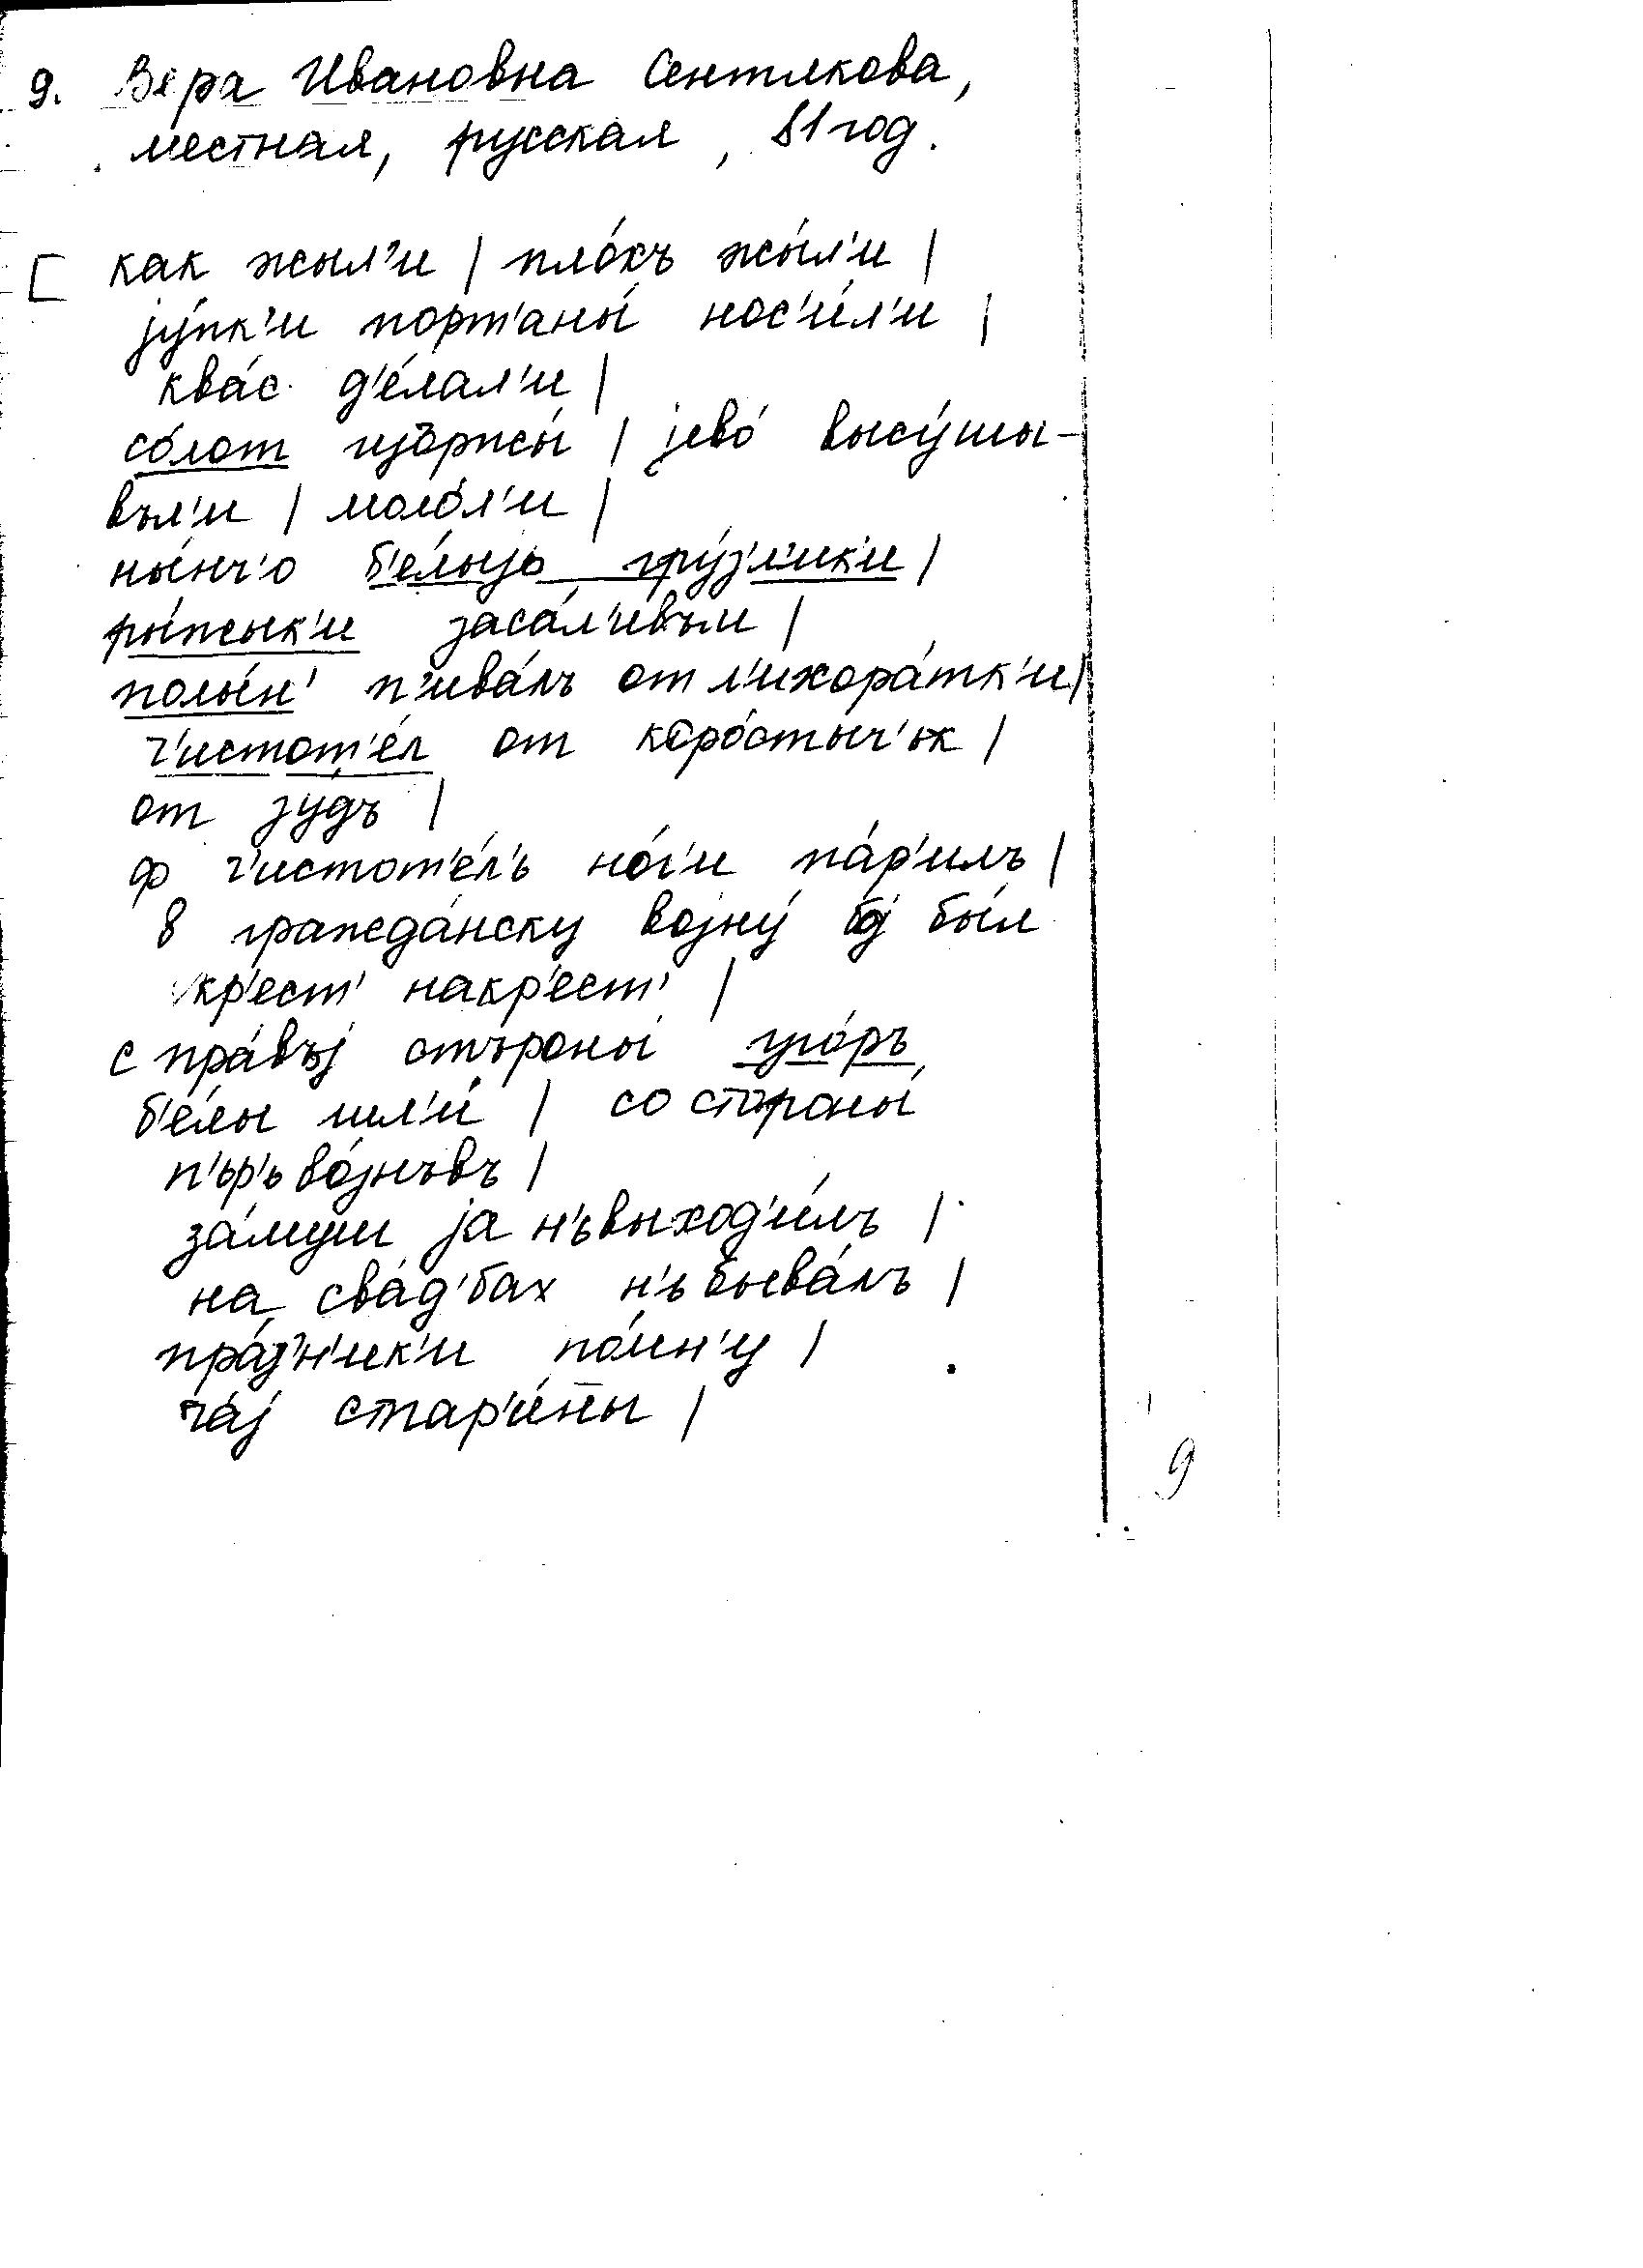 9. Вера Ивановна Сентякова,
местная, русская, 81 год.
[ как жыл'и | пло́хъ жы́л'и |
jу́пк'и порт'аны́ нос'и́л'и |
ква́с д'е́лал'и |
со́лот ржы́ | jево́ высу́шы-
въл'и | моло́л'и |
ны́нч'о б'е́лыjь гру́з'д'ик'и |
ры́жык'и заса́л'ивъм |
полы́н' п'ива́лъ от л'ихора́тк'и |
ч'истот'е́л от коро́стыч'ьк |
от зудъ |
ф ч'истот'е́л'ь но́г'и па́р'илъ |
в гражда́нску воjну́ бо́j бы́л
кр'ест' накр'ест' |
с пра́въj стъроны́ уго́ръ
б'е́лы шл'и́ | со стороны́
п'ьр'ьво́jнъвъ |
за́муш jа н'ьвыход'и́лъ |
на сва́д'бах н'ь быва́лъ |
пра́з'н'ик'и по́мн'у |
ча́j стар'и́ны |
9